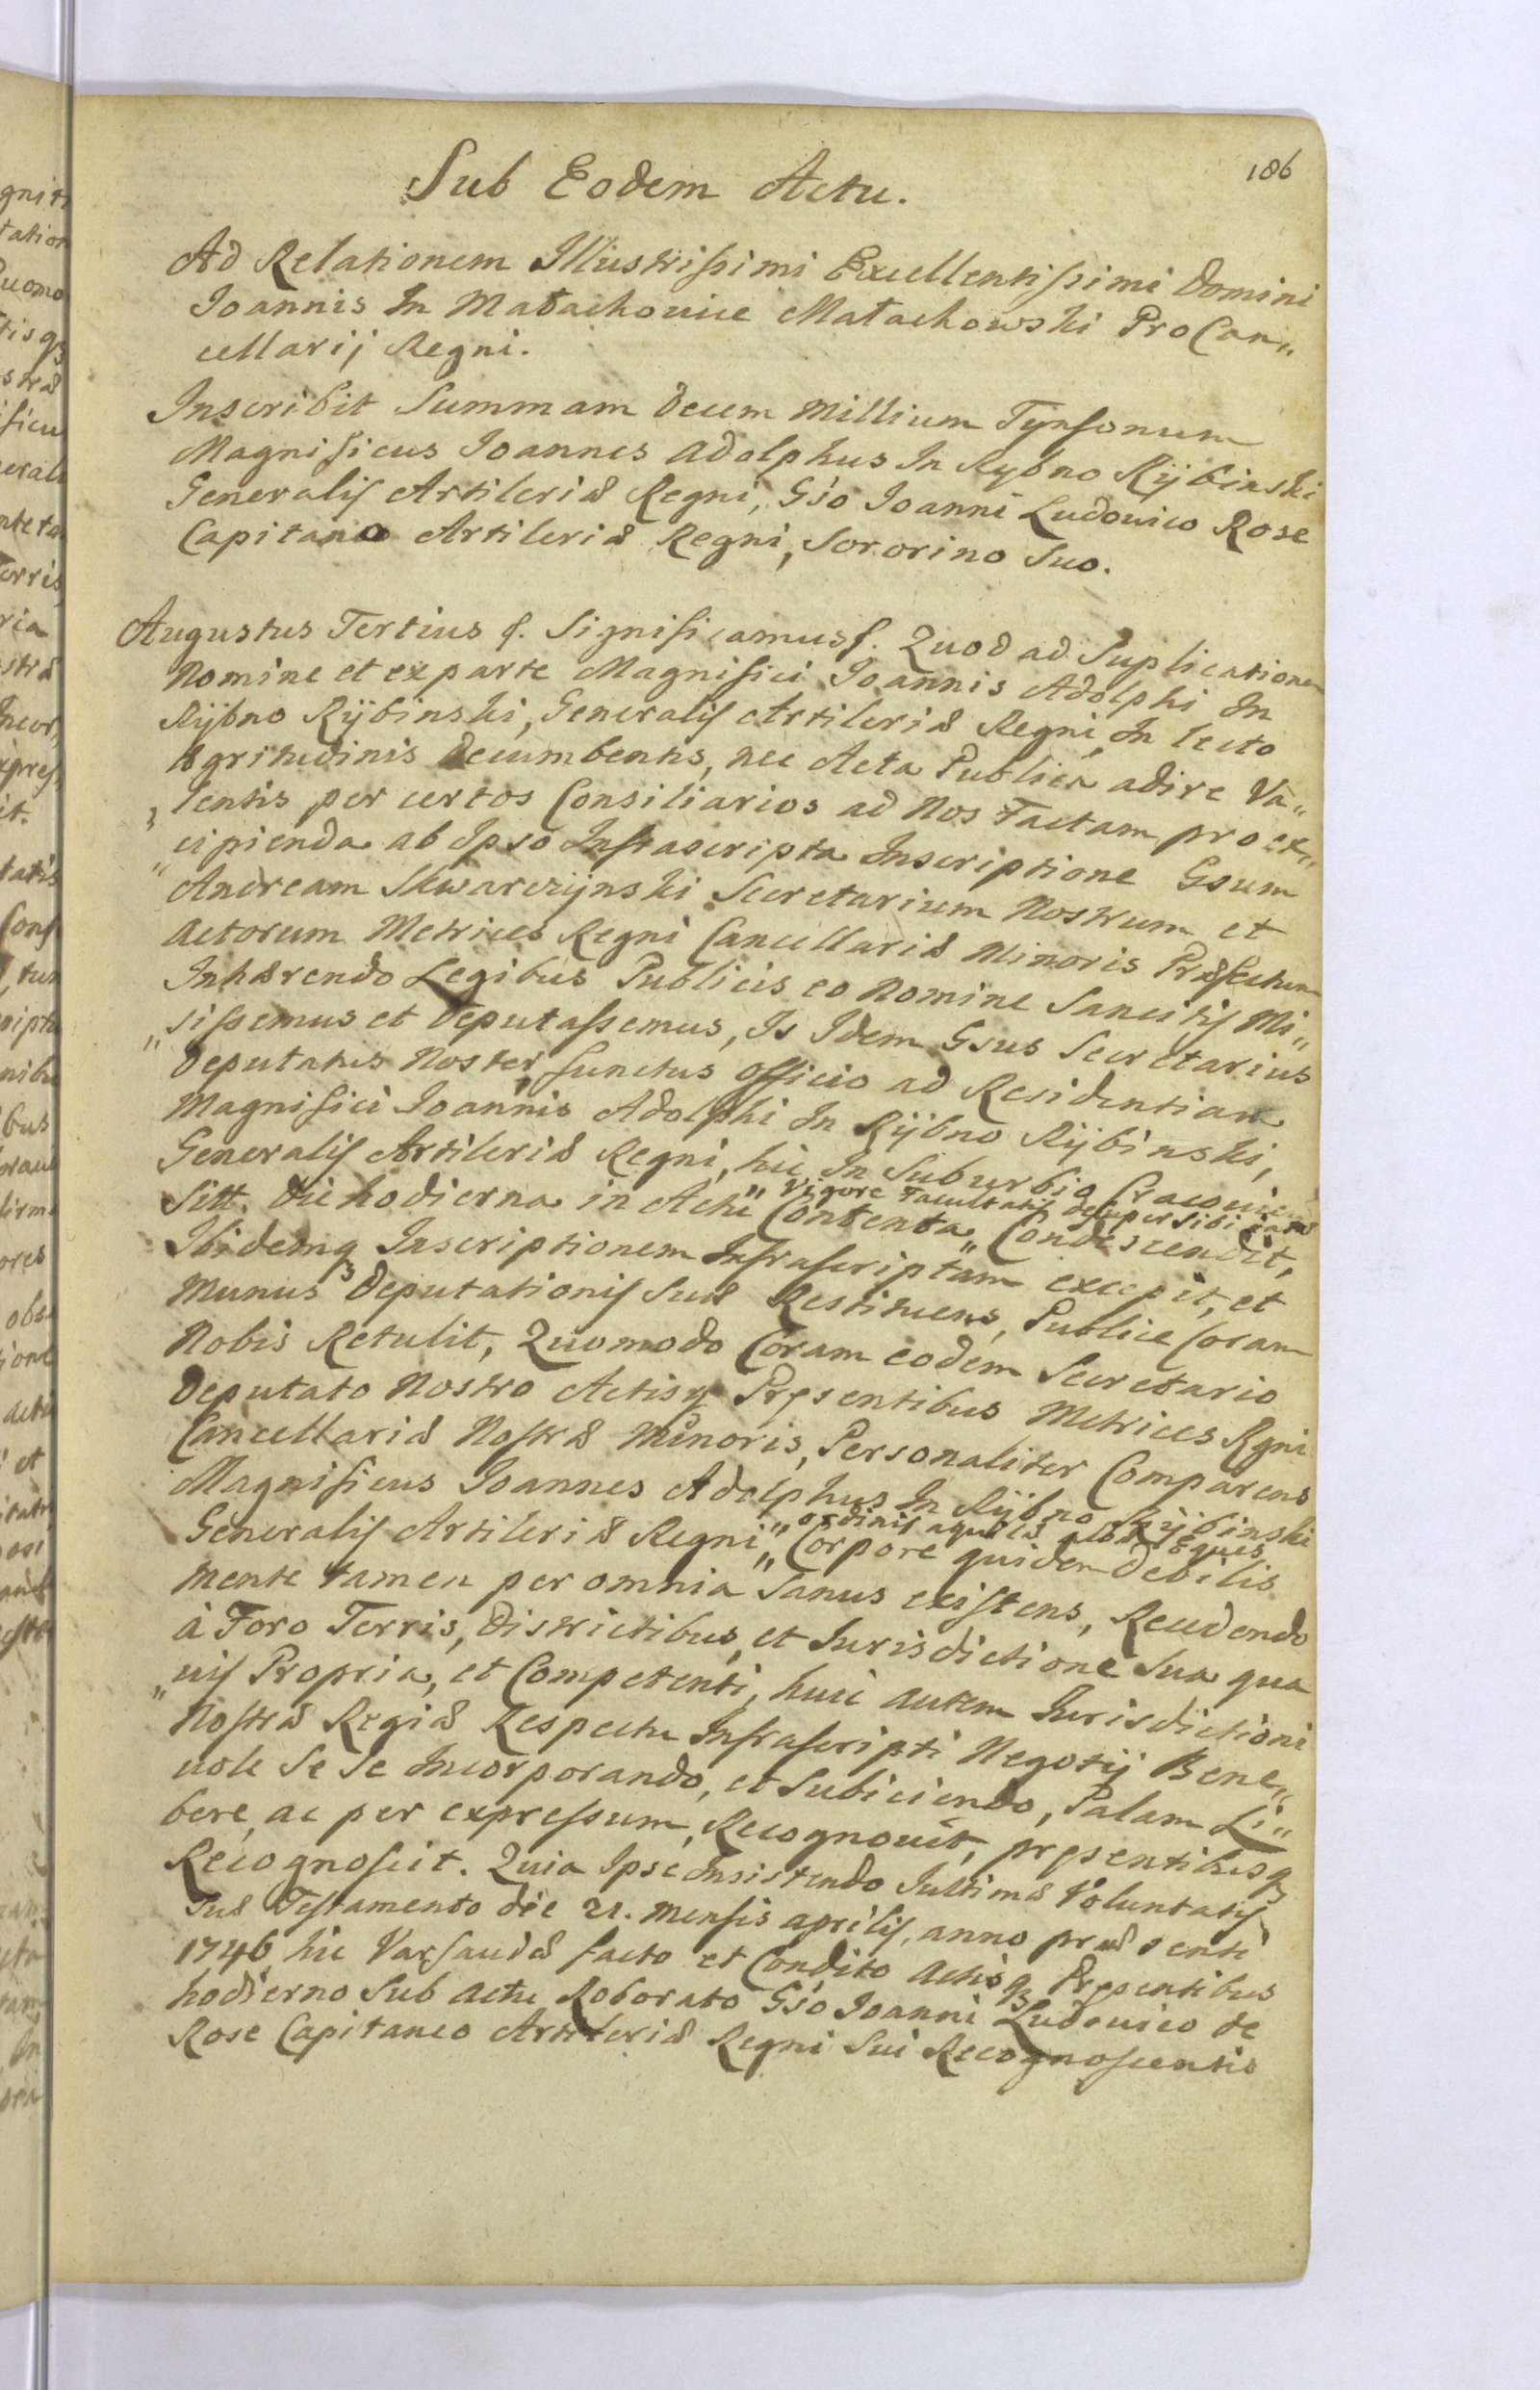 186
Sub Eodem Actu.
Ad Relationem Illustrissimi Excellentissimi Domini
Ioannis In Małachowice Małachowski ProCan„
cellarij Regni.
Inscribit Summam decem Millium Tynfonum
Magnificus Ioannes Adolphus In Rybno Rÿbinski
Generalis Artileriæ Regni, Gso Ioanni Ludovico Rose
Capitano Artileriæ Regni, Sororino Suo.
Augustus Tertius &. Significamus &. Quod ad Suplicationem
Nomine et ex parte Magnifici Ioannis Adolphi In
Rÿbno Rÿbinski, Generalis Artileriæ Regni, In lecto
Ægritudinis decumbentis, nec Acta Publica adire Va„
„lentis per certos Consiliarios ad Nos Factam pro ex„
„cipienda ab Ipso Infrascripta Inscriptione Gsum
Andream Skwarczÿnski Secretarium Nostrum et
Actorum Metrices Regni Cancellariæ Minoris Præfectum
Inhærendo Legibus Publicis eo Nomine Sancitis Mi„
„sissemus et Deputassemus, Is Idem Gsus Secretarius
Deputatus Noster, functus officio ad Residentiam
Magnifici Ioannis Adolphi In Rÿbno Rÿbinski,
Generalis Artileriæ Regni, hic In Suburbio Cracoviensi
Sitt. die hodierna in Actu „Vigore Facultatis desuper Sibi
Contenta„ Condescendit,
Ibidemq Inscriptionem Infrascriptam excepit, et
Munus Deputationis Suæ Restituens, Publice Coram
Nobis Retulit, Quomodo Coram eodem Secretario
Deputato Nostro Actisq Pręsentibus Metrices Rgni
Cancellariæ Nostræ Minoris, Personaliter Comparens
Magnificus Ioannes Adolphus In Rÿbno Rÿbinski
Generalis Artileriæ Regni, „ordinis aquilæ albæ Eques
„Corpore quidem debilis
Mente tamen per omnia Sanus existens, Recedendo
à Foro Terris, Districtibus, et Iurisdictione Sua qua
„vis Propria, et Competenti, huic autem Iurisdictioni
Nostræ Regiæ Respectu Infrascripti Negotij Bene„
vole Se Se Incorporando, et Subiciendo, Palam Li„
bere, ac per expressum, Recognovit, pręsentibusq
Recognoscit. Quia Ipse Insistendo Iultimæ Voluntatis
Suæ Testamento die 21. Mensis Aprilis, anno præsenti
1746 hic Varsaviæ facto et Condito Actisq Pręsentibus
hodierno Sub Actu Roborato Gso Ioanni Ludovico de
Rose Capitaneo Artileriæ Regni Sui Recognoscentis